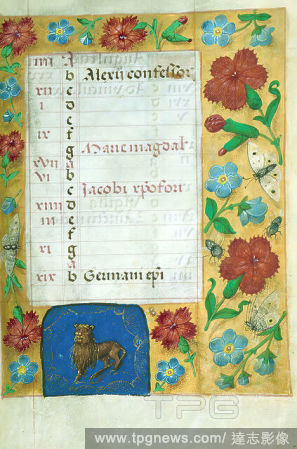 iiii A
b Alexii confessor
xii c
i d
e
ix f
g Marie magdal
xvii A
vi b
c Jacobi xpofori
xiiii d
iii e
f
xi g
A
xix b Germani epi
TPG
www.tpgnews.com/ 達志影像